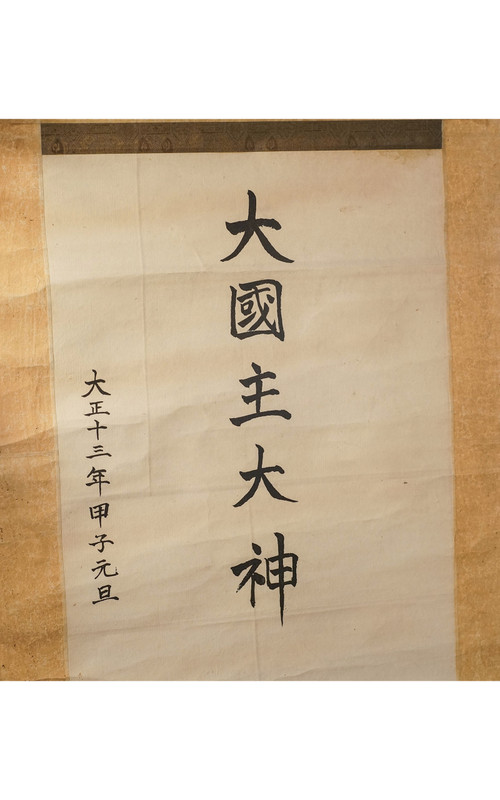 大國主大神
大正十三年甲子元旦